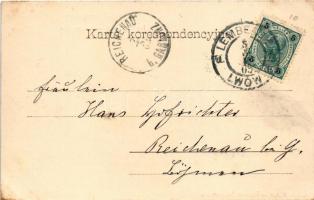 Karta korespondencyjna
REICHENAU
LEMBERG
LWÓW
5
Fräulein
Hans Hofrichter
Reichenau b/G.
Böhmen